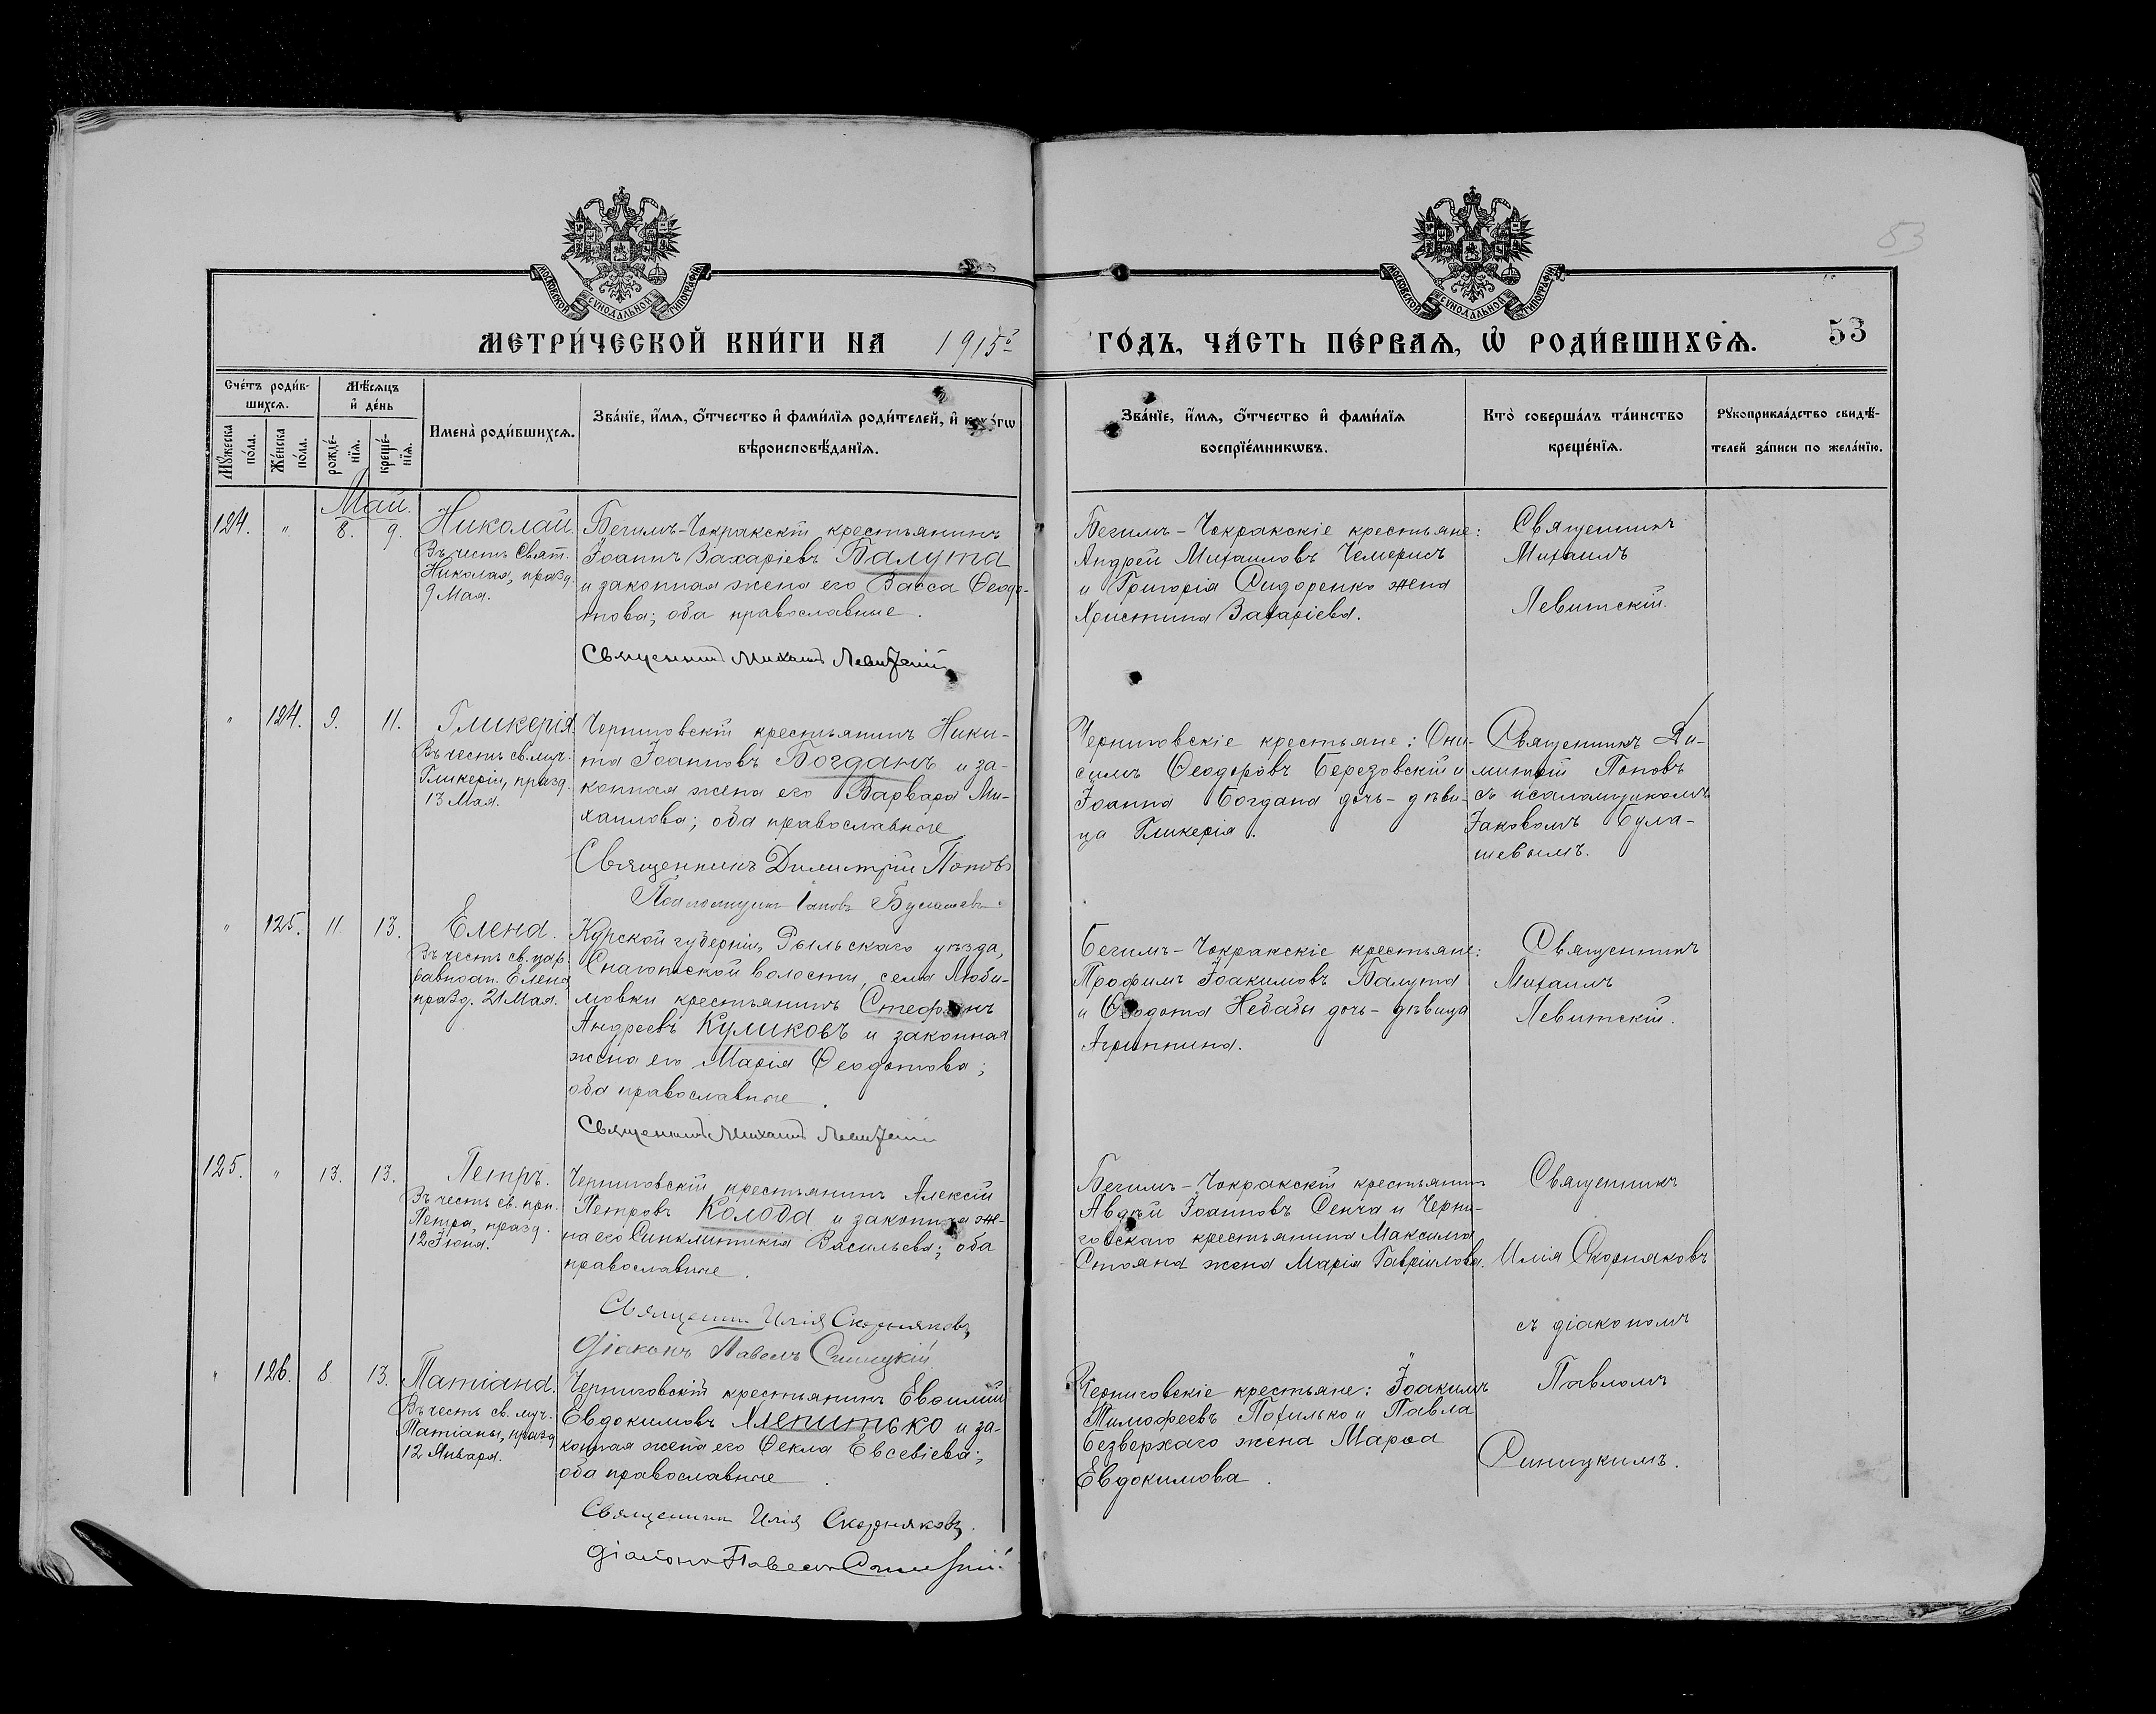 53
МОСКОВСКОЙ СѴНОДАЛЬНОЙ ТИПОГРАФІИ
МОСКОВСКОЙ СѴНОДАЛЬНОЙ ТИПОГРАФІИ
МЕТРИ́ЧЕСКОЙ КНИ́ГИ НА 1915й
ГО́ДЪ, ЧА́СТЬ ПЕ́РВАѦ, Ѽ РОДИ́ВШИХСѦ. 53
Сче́тъ роди́в-
шихсѧ.
Мѣ́сѧцъ
и҆ де́нь
Мꙋ́жеска
по́ла.
Же́нска
по́ла.
рожде́-
нїѧ.
креще́-
нїѧ.
Имена̀ роди́вшихсѧ.
Зва́нїе, и҆́мѧ, ѻ҆́тчество и҆ фами́лїѧ роди́телей, и҆ ко́гѡ
вѣроисповѣ́данїѧ.
Зва́нїе, и҆́мѧ, ѻ҆́тчество и҆ фами́лїѧ
воспрїе́мникѡвъ.
Кто̀ соверша́лъ та́инство
креще́нїѧ.
Рꙋкоприкла́дство свидѣ́-
телей за́писи по жела́нїю.
Май.
124. " 8. 9.
Николай.
Въ честь Свят.
Николая, празд.
9 Мая.
Бегимъ-Чокракскій крестьянинъ
Іоаннъ Захаріевъ Балута
и законная жена его Васса Ѳеодо-
това; оба православные.
Священникъ Михаилъ Левитскій
Бегимъ-Чокракскіе крестьяне:
Андрей Михаиловъ Чемерисъ
и Григорія Сидоренко жена
Христина Захаріева.
Священникъ
Михаилъ
Левитскій.
" 124. 9. 11.
Гликерія.
Въ честь св. муч.
Гликеріи, празд.
13 Мая.
Черниговскій крестьянинъ Ники-
та Іоанновъ Богданъ и за-
конная жена его Варвара Ми-
хаилова; оба православные
Священникъ Димитрій Поповъ
Псаломщикъ Іаковъ Булашевъ
Черниговскіе крестьяне: Они-
симъ Ѳеодоровъ Березовскій и
Іоанна Богдана дочь-дѣви-
ца Гликерія.
Священникъ Ди-
митрій Поповъ
съ псаломщикомъ
Іаковомъ Була-
шевымъ.
" 125. 11 13.
Елена.
Въ честь св. цар.
равноап. Елены,
празд. 21 Мая.
Курской губерніи, Рыльскаго уѣзда,
Снагостской волости, села Люби-
мовки крестьянинъ Стефанъ
Андреевъ Куликовъ и законная
жена его Марія Ѳеодотова;
оба православные.
Священникъ Михаилъ Левитскій
Бегимъ-Чокракскіе крестьяне:
Трофимъ Іоакимовъ Балута
и Ѳеодота Небабы дочь-дѣвица
Агриппина.
Священникъ
Михаилъ
Левитскій.
125. " 13. 13.
Петръ.
Въ честь св. прп.
Петра, празд.
12 Іюня.
Черниговскій крестьянинъ Алексій
Петровъ Колода и законная же-
на его Синклитикія Васильева; оба
православные.
Священникъ Илія Скорняковъ
Діаконъ Павелъ Синицкій
Бегимъ-Чокракскій крестьянинъ
Авдѣй Іоанновъ Сенча и Черни-
говскаго крестьянина Максима
Стояна жена Марія Гавріилова.
Священникъ
Илія Скорняковъ
съ діакономъ
" 126. 8 13.
Татіана.
Въ честь св. муч.
Татіаны, празд.
12 Января.
Черниговскій крестьянинъ Евѳимій
Евдокимовъ и за-
конная жена его Ѳекла Евсевіева;
оба православные.
Священникъ Илія Скорняковъ.
Діаконъ Павелъ Синицкій
Черниговскіе крестьяне: Іоакимъ
Тимофеевъ Похилько и Павла
Безверхаго жена Марѳа
Евдокимова.
Павломъ
Синицкимъ.